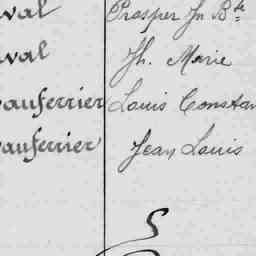 val Prosper Jn Bte
val Jh. Marie
auferrier Louis Constan
auferrier Jean Louis
S